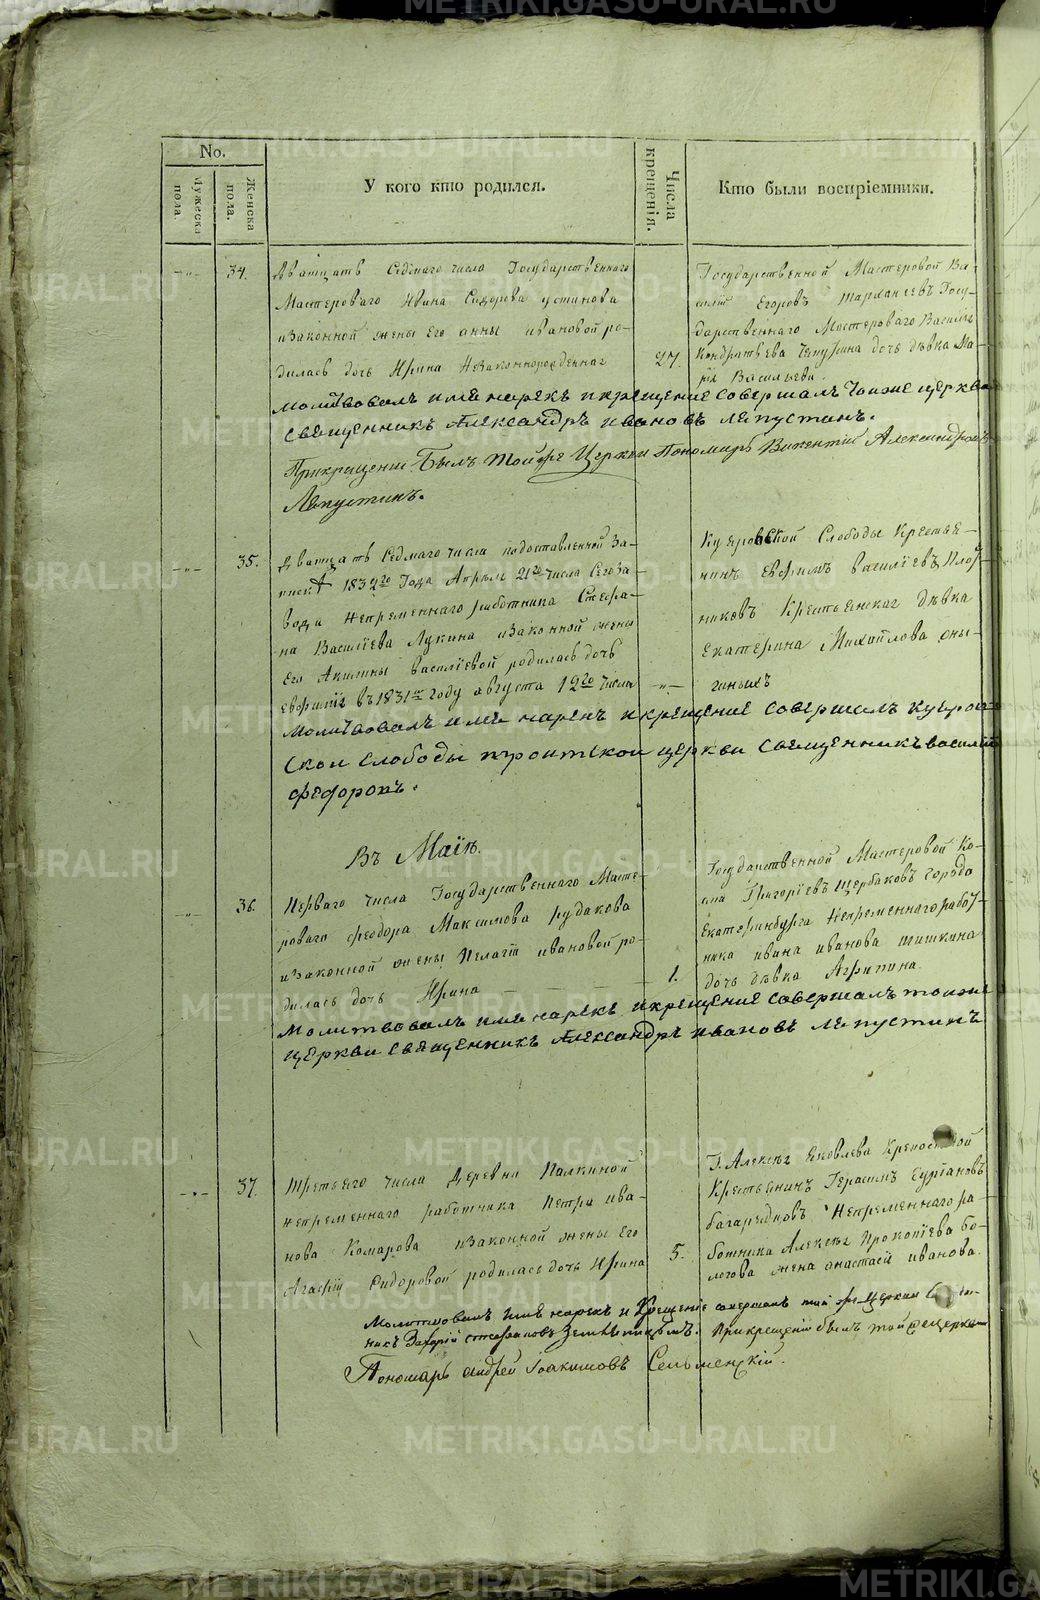 METRIKI.GASO-URAL.RU
No.
Мужеска пола.
Женска пола.
У кого кто родился.
Числа крещенія.
Кто были воспріемники.
34.
Дватцать Седмаго числа Государственнаго
Мастероваго Ивана Сидорова устинова
изаконной жены Его анны ивановой ро-
дилась дочь Ирина Незаконнорожденная
27.
Государственной Мастеровой Ва-
силій Егоровъ Госу-
дарственнаго Мастероваго Василья
Кондратьева дочь дѣвка Ма-
рія Васильева.
молитвовалъ имя нарекъ икрещение совершалъ тоиже церкви
священникъ Александръ ивановъ ляпустинъ.
Прикрещении былъ тойже Церкви Пономарь Викентій Александровъ
Ляпустинъ.
35.
Дватцать Седмаго числа подоставленной За-
писки 1832го Года Апреля 21го числа Сего За-
вода непременнаго работника Стефа-
на Василіева Лукина изаконной жены
Его Акилины василіевой родилась дочь
евфимія въ 1831м году августа 19го числа
Куяровской Слободы Крестья-
нинъ Евфимъ василіевъ Плот-
никовъ Крестьянская дѣвка
Екатерина Михайлова
молитвовалъ имя нарекъ икрещение совершалъ куяров-
скои слободы троитскои церкви священникъ василій
федоровъ.
Въ Маїѣ.
36.
Перваго числа Государственнаго Масте-
роваго феодора Максимова рудакова
изаконной жены Пелагіи ивановой ро-
дилась дочь Ирина
1.
Государственной Мастеровой Ко-
сма Григоріевъ щербаковъ города
Екатеринбурга Непременнаго работ-
ника ивана иванова шишкина
дочь дѣвка Агрипина.
молитвовалъ имя нарекъ икрещение совершалъ тоиже
церкви священникъ Александръ ивановъ ляпустинъ
37.
Третьего числа Деревни Палкиной
непременнаго работника Петра ива-
нова Комарова изаконной жены Его
Агафіи Сидоровой родилась дочь Ирина
5.
Г. Алексѣя Яковлева Крепостной
Крестьянинъ Герасимъ
Непременнаго ра-
ботника Алексѣя Прокопіева бо-
лотова жена анастасія иванова.
Молитвовалъ имя нарекъ и Крещеніе совершалъ той же Церкви
никъ Захарій стефановъ Земляницынъ. Прикрещеніи былъ той же церкви
Пономарь андрей Іоакимовъ Сельменскій.